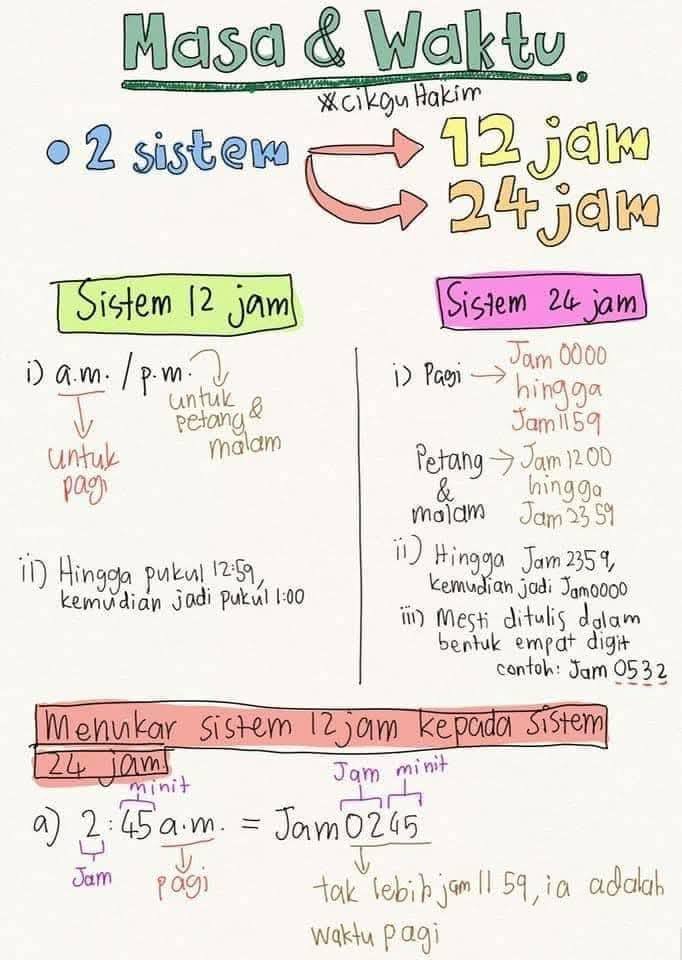 Masa & Waktu.
#cikguHakim
• 2 sistem
12 jam
24 jam
Sistem 12 jam
i) a.m. / p.m.
untuk
pagi
untuk
petang &
malam
ii) Hingga pukul 12:59,
kemudian jadi pukul 1:00
Sistem 24 jam
i) Pagi → Jam 0000
hingga
Jam 1159
Petang → Jam 1200
& hingga
malam Jam 2359
ii) Hingga Jam 2359,
kemudian jadi Jam0000
iii) Mesti ditulis dalam
bentuk empat digit
contoh: Jam 0532
Menukar sistem 12 jam kepada sistem
24 jam
minit
Jam minit
a) 2:45 a.m. = Jam 0245
Jam
pagi
tak lebih jam 1159, ia adalah
waktu pagi